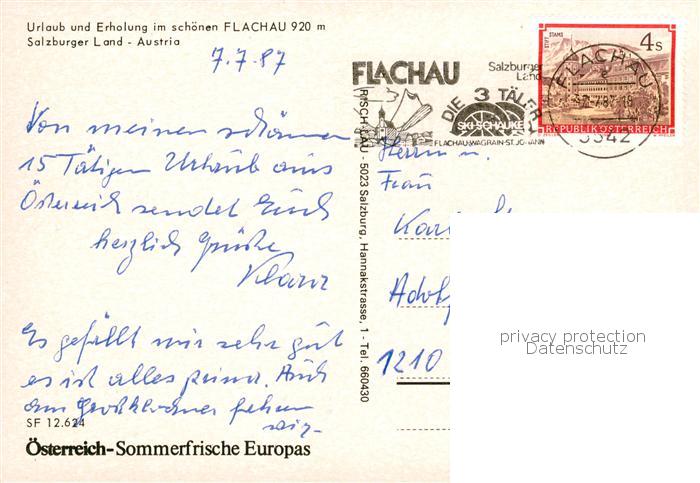 Urlaub und Erholung im schönen FLACHAU 920 m
Salzburger Land - Austria
7.7.87
Von meinen schönen
15 Tätigen Urlaub aus
Österreich sendet Euch
herzlich Grüße
Es gefällt mir sehr gut
es ist alles prima. Auch
am Großklockner fahren
wir
SF 12.624
Österreich-Sommerfrische Europas
FLACHAU
Salzburger
Land
DIE 3 TÄLER
SKI-SCHAUKEL
FLACHAU-WAGRAIN-ST.JOHANN
RISCH-LAU - 5023 Salzburg, Hannakstrasse, 1 - Tel. 660430
STIFT STAMS
4 S
REPUBLIK ÖSTERREICH
FLACHAU
5542
Herrn u.
Frau
1210
privacy protection
Datenschutz